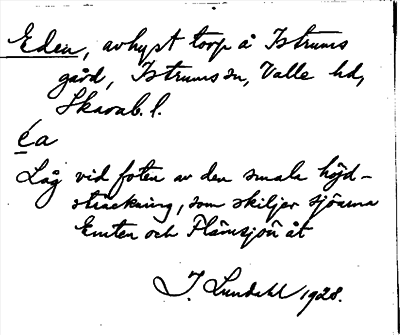 Eden, avhyst torp å Istrums
gård, Istrums sn, Valle hd,
Skarab. l.
éa
Låg vid foten av den smala höjd-
sträckning, som skiljer sjöarna
Emten och Flämsjön åt
I. Lundahl 1928.